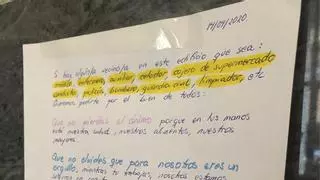 14/04/2020.
Si hay algún/a vecino/a en este edificio que sea:
médico, enfermero, auxiliar, celador, cajero de supermercado
policía, bombero, guardia civil, limpiador, etc
Queremos pedirte por el bien de todos:
Que no pierdas el ánimo porque en tus manos
está nuestra salud, nuestros alimentos, nuestros
mayores.
Que no olvides que para nosotros eres un
orgullo, mientras tu trabajas, nosotros estamos